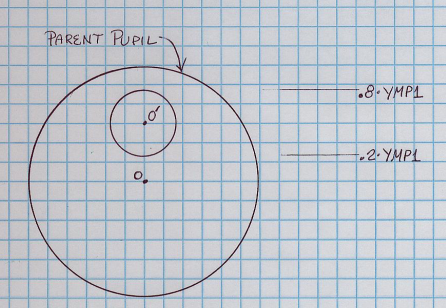 PARENT PUPIL
O'
.8·YMP1
.2·YMP1
O